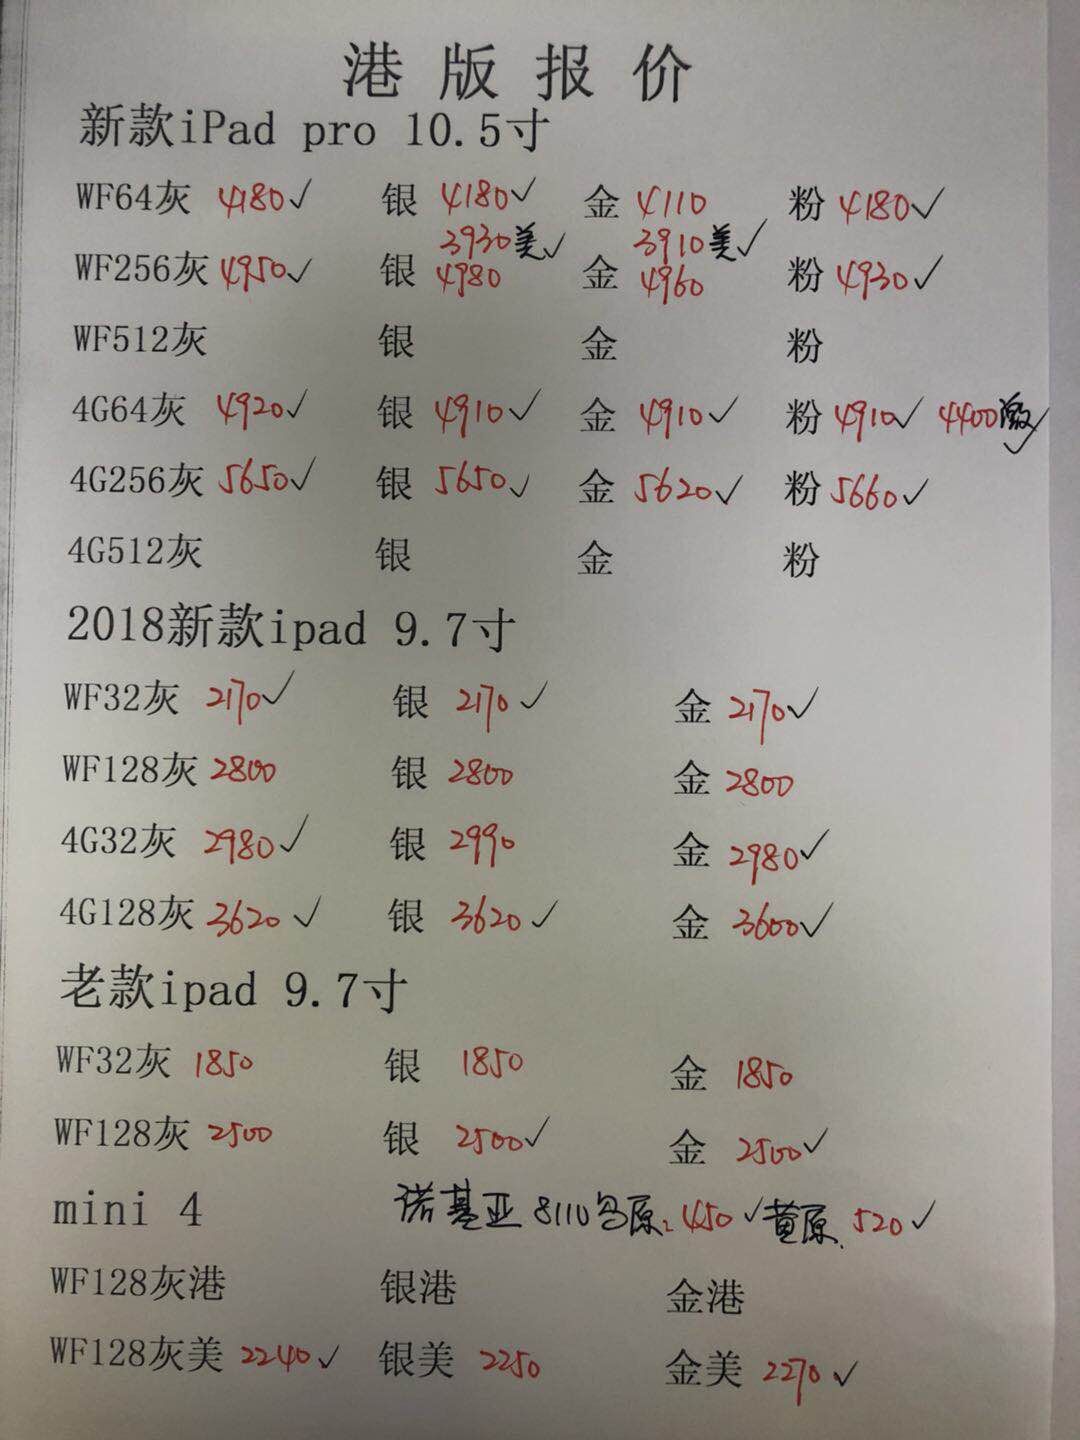 港版报价
新款iPad pro 10.5寸
WF64灰 4180✓ 银 4180✓ 金 4110 粉 4180✓
3930美✓ 3910美✓
WF256灰 4950✓ 银 4980 金 4960 粉 4930✓
WF512灰 银 金 粉
4G64灰 4920✓ 银 4910✓ 金 4910✓ 粉 4910✓ 4400激✓
4G256灰 5650✓ 银 5650✓ 金 5620✓ 粉 5660✓
4G512灰 银 金 粉
2018新款ipad 9.7寸
WF32灰 2170✓ 银 2170✓ 金 2170✓
WF128灰 2800 银 2800 金 2800
4G32灰 2980✓ 银 2990 金 2980✓
4G128灰 3620✓ 银 3620✓ 金 3600✓
老款ipad 9.7寸
WF32灰 1850 银 1850 金 1850
WF128灰 2500 银 2500✓ 金 2500✓
mini 4 诺基亚 8110 原: 450✓ 黄原. 520✓
WF128灰港 银港 金港
WF128灰美 2240✓ 银美 2250 金美 2270✓